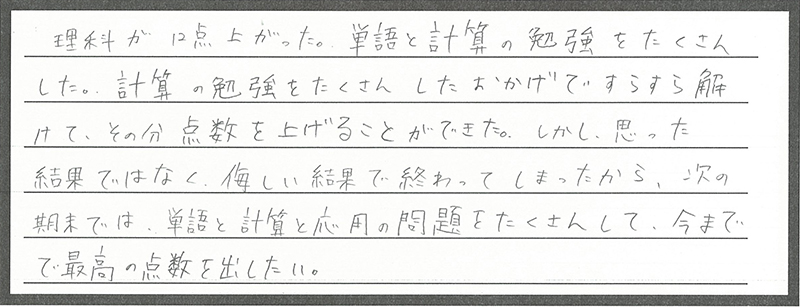 理科が12点上がった。単語と計算の勉強をたくさん
した。計算の勉強をたくさんしたおかげですらすら解
けて、その分点数を上げることができた。しかし、思った
結果ではなく、侮しい結果で終わってしまったから、次の
期末では、単語と計算と応用の問題をたくさんして、今まで
で最高の点数を出したい。